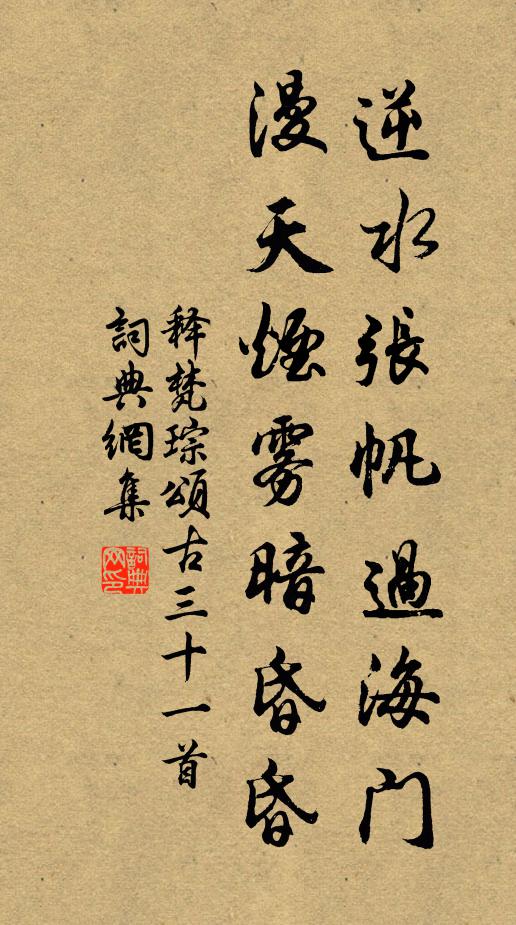 逆水張帆過海門
漫天煙雾暗昏昏
释梵琮頌古三十一首
詞典網集
詞典网印